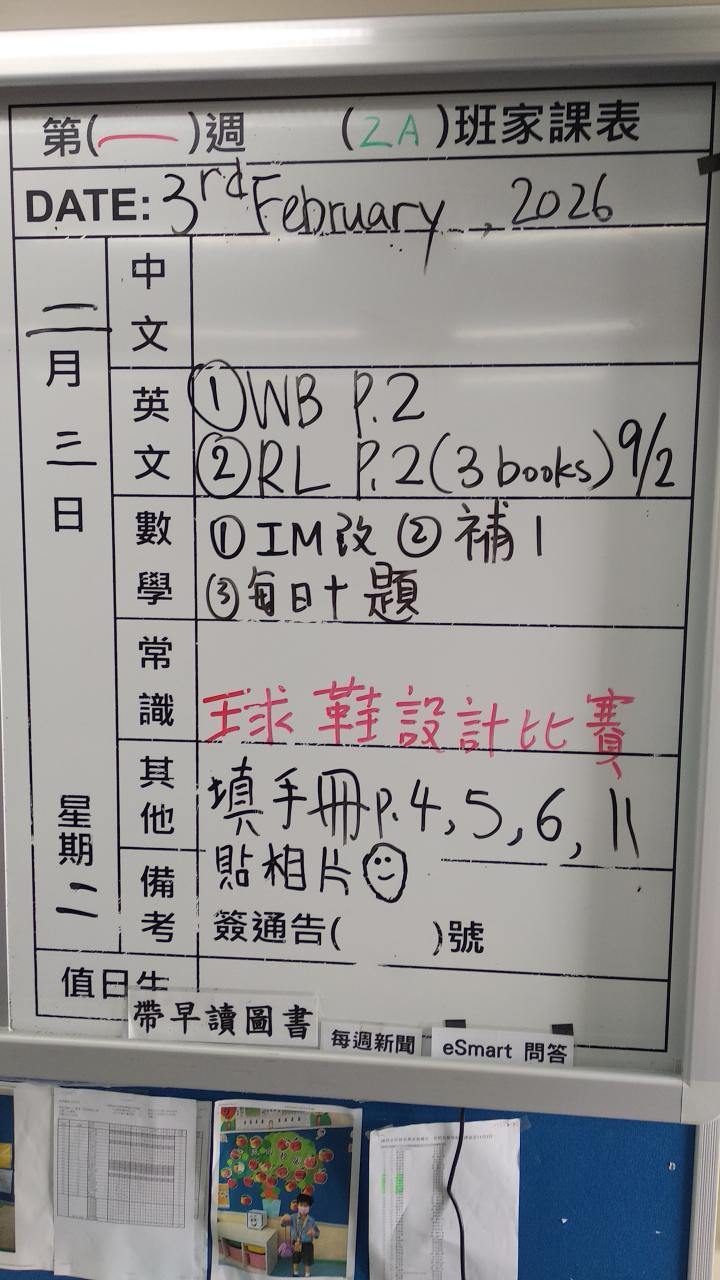 第(一)週 (2A)班家課表
DATE: 3rd February, 2026
二月三日
星期二
中文
英文
①WB P.2
②RL P.2(3 books) 9/2
數學
①IM改 ②補1
③每日十題
常識
球鞋設計比賽
其他
填手冊p.4, 5, 6, 11
貼相片
備考
簽通告( )號
值日生
帶早讀圖書
每週新聞
eSmart 問答